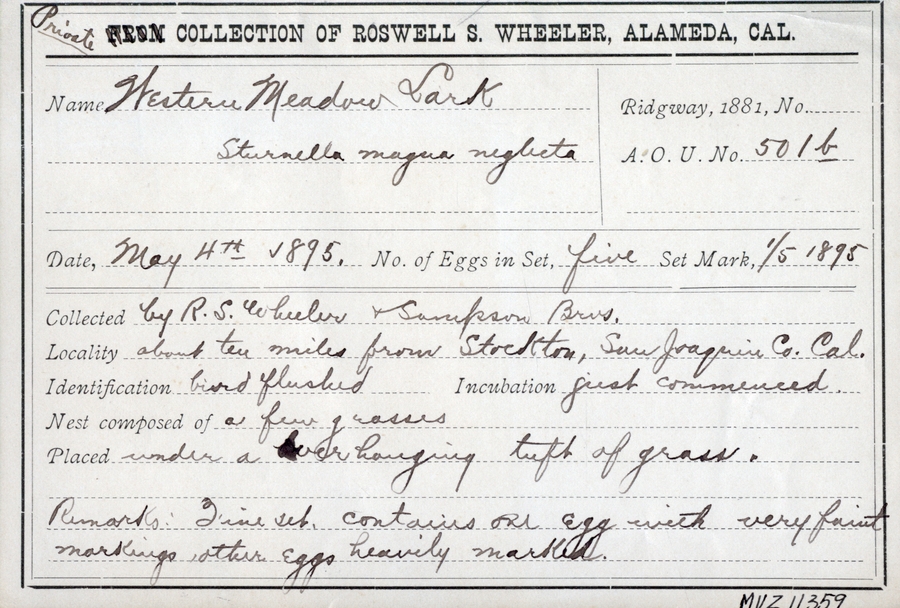 Private FROM COLLECTION OF ROSWELL S. WHEELER, ALAMEDA, CAL.
Name Western Meadow Lark
Ridgway, 1881, No.
Sturnella magna neglecta
A. O. U. No. 501b
Date, May 4th 1895. No. of Eggs in Set, five Set Mark, 1/5 1895
Collected by R. S. Wheeler + Sampson Bros.
Locality about ten miles from Stockton, San Joaquin Co. Cal.
Identification bird flushed Incubation just commenced.
Nest composed of a few grasses
Placed under a overhanging tuft of grass.
Remarks: Fine set. contains one egg with very faint
markings other eggs heavily marked.
MVZ 11359